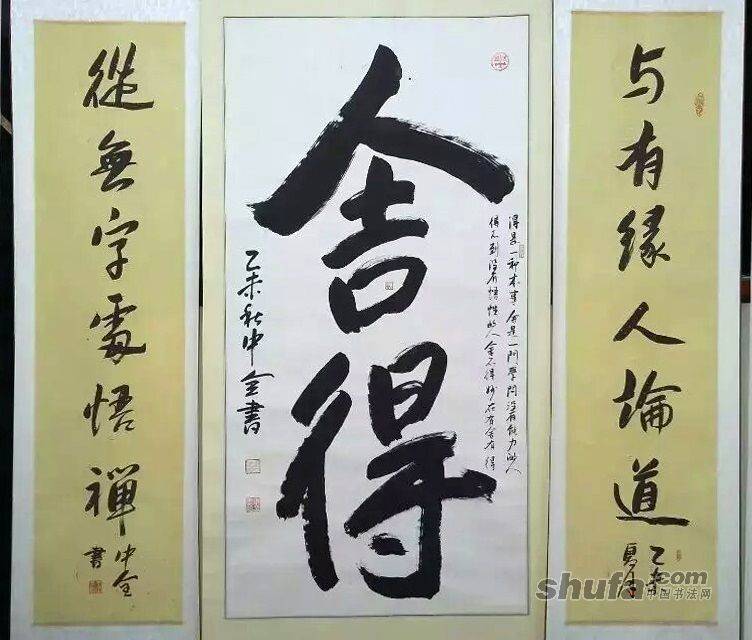 与有缘人論道
乙未
夏月
舍得
得是一种本事舍是一門學問没有能力的人
得不到没有悟性的人舍不得妙在有舍有得
乙未秋中全書
從無字處悟禪
中全
書
shufa.com
中国书法网